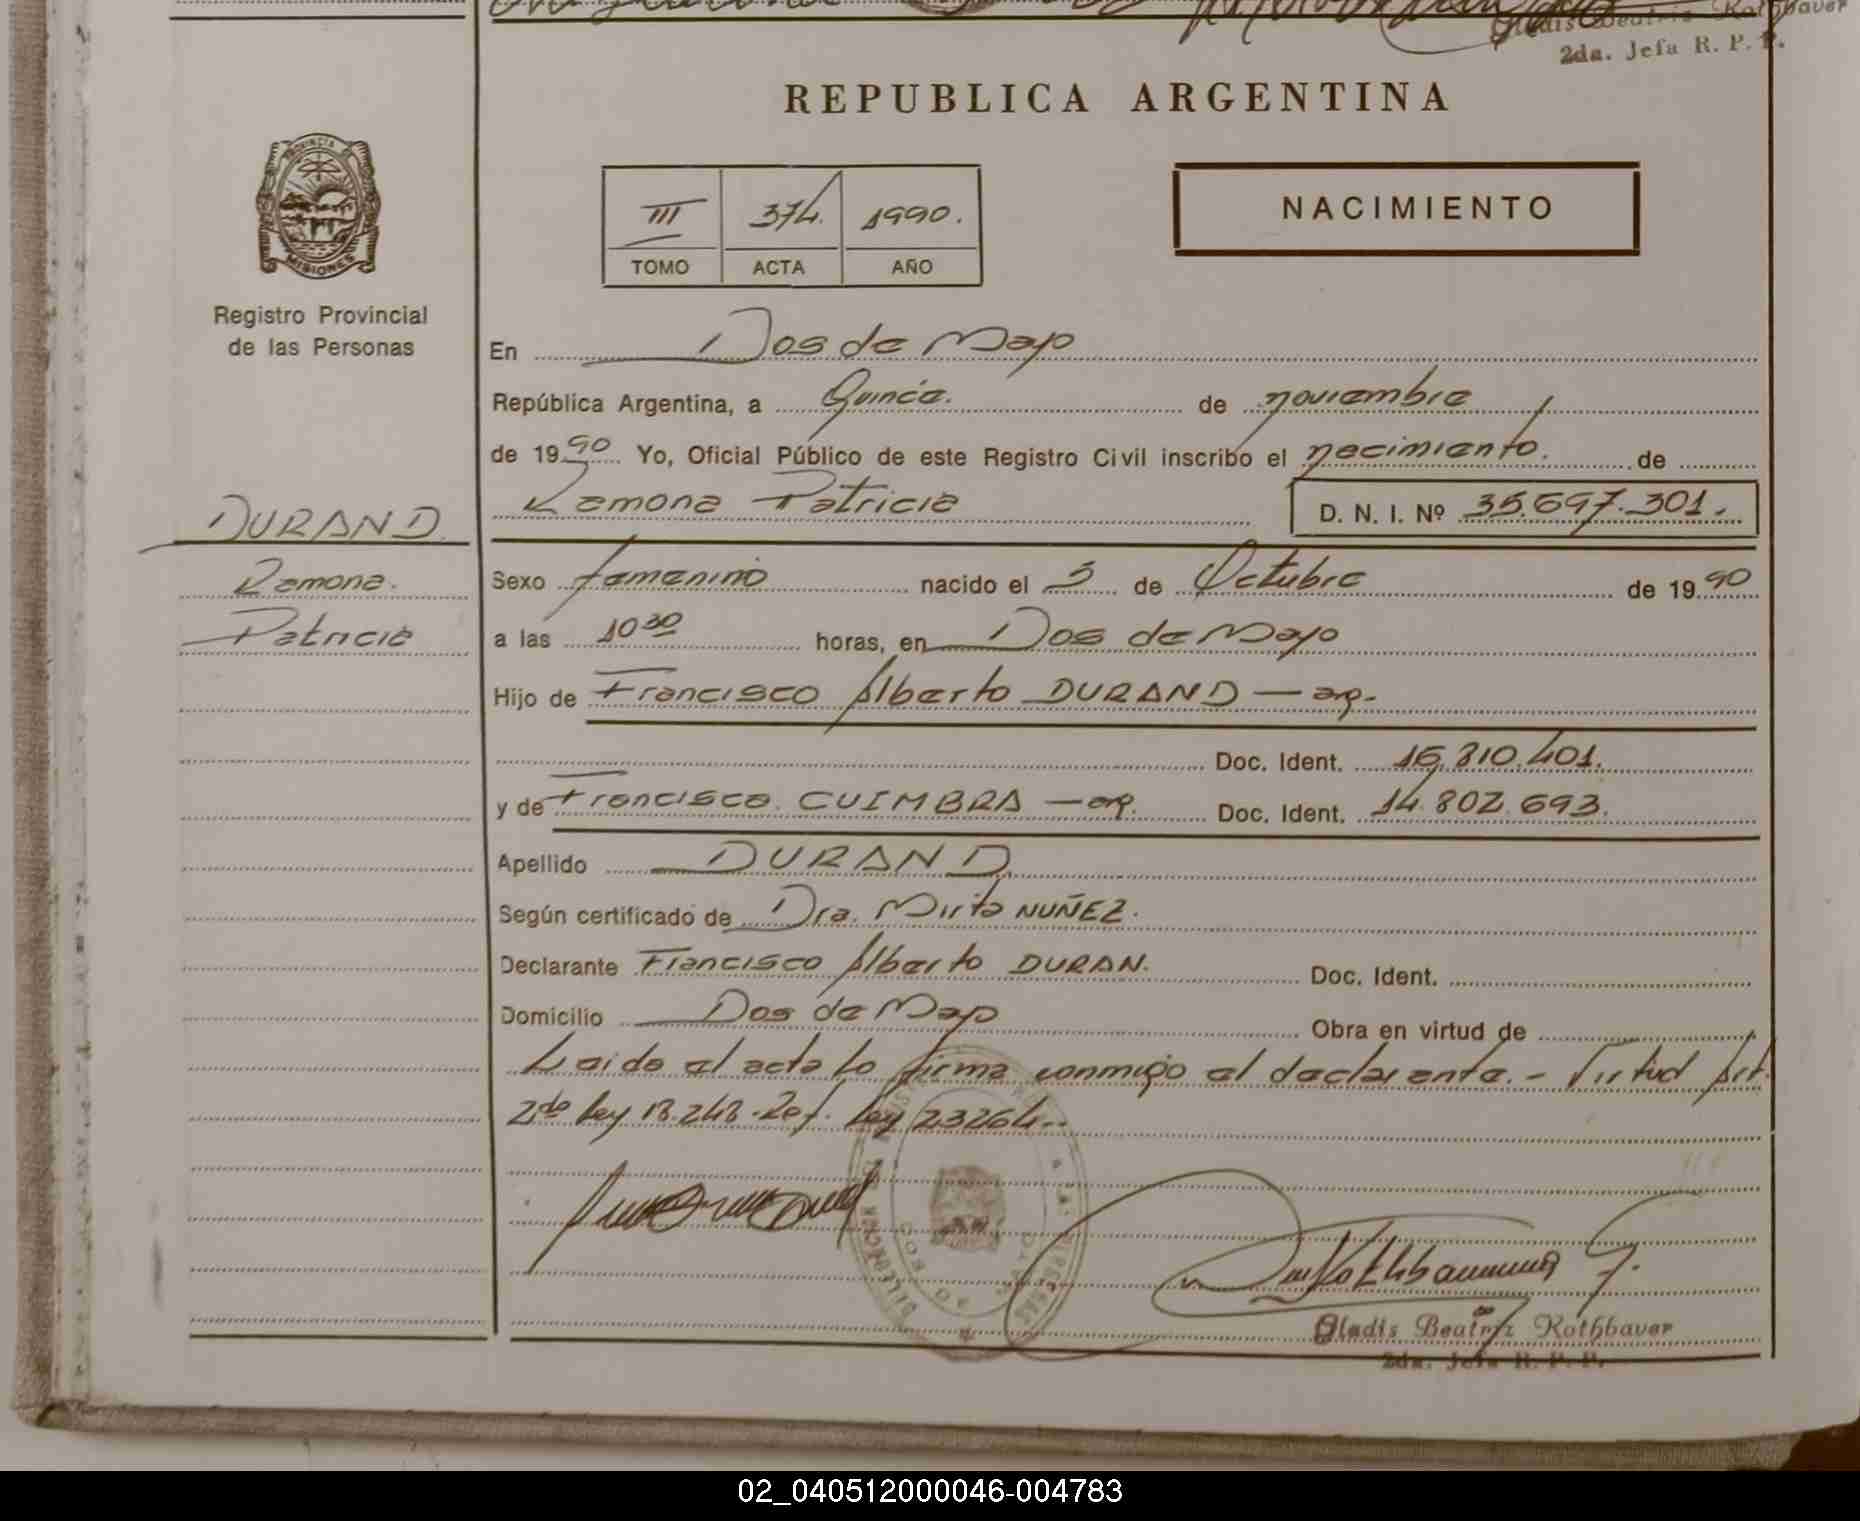 Gladis Beatriz Kothbauer
2da. Jefa R. P. P.
REPUBLICA ARGENTINA
PROVINCIA DE
MISIONES
Registro Provincial
de las Personas
III 374. 1990.
TOMO ACTA AÑO
NACIMIENTO
DURAND
Ramona
Patricia
En Dos de Mayo
República Argentina, a Quince. de noviembre
de 1990 Yo, Oficial Público de este Registro Civil inscribo el nacimiento. de
Ramona Patricia D. N. I. Nº 35.697.301.
Sexo femenino nacido el 5 de Octubre de 1990
a las 10 30 horas, en Dos de Mayo
Hijo de Francisco Alberto DURAND — arg.
Doc. Ident. 16.810.401.
y de Francisca CUIMBRA — arg. Doc. Ident. 14.802.693.
Apellido DURAND.
Según certificado de Dra. Mirta NUÑEZ.
Declarante Francisco Alberto DURAN. Doc. Ident.
Domicilio Dos de Mayo Obra en virtud de
Leida el acta lo firma conmigo el declarante.- Virtud Art.
2do ley 18.248. Ref. ley 23264..
DOS DE MAYO
Gladis Beatriz Kothbauer
2da. Jefa R. P. P.
02_040512000046-004783